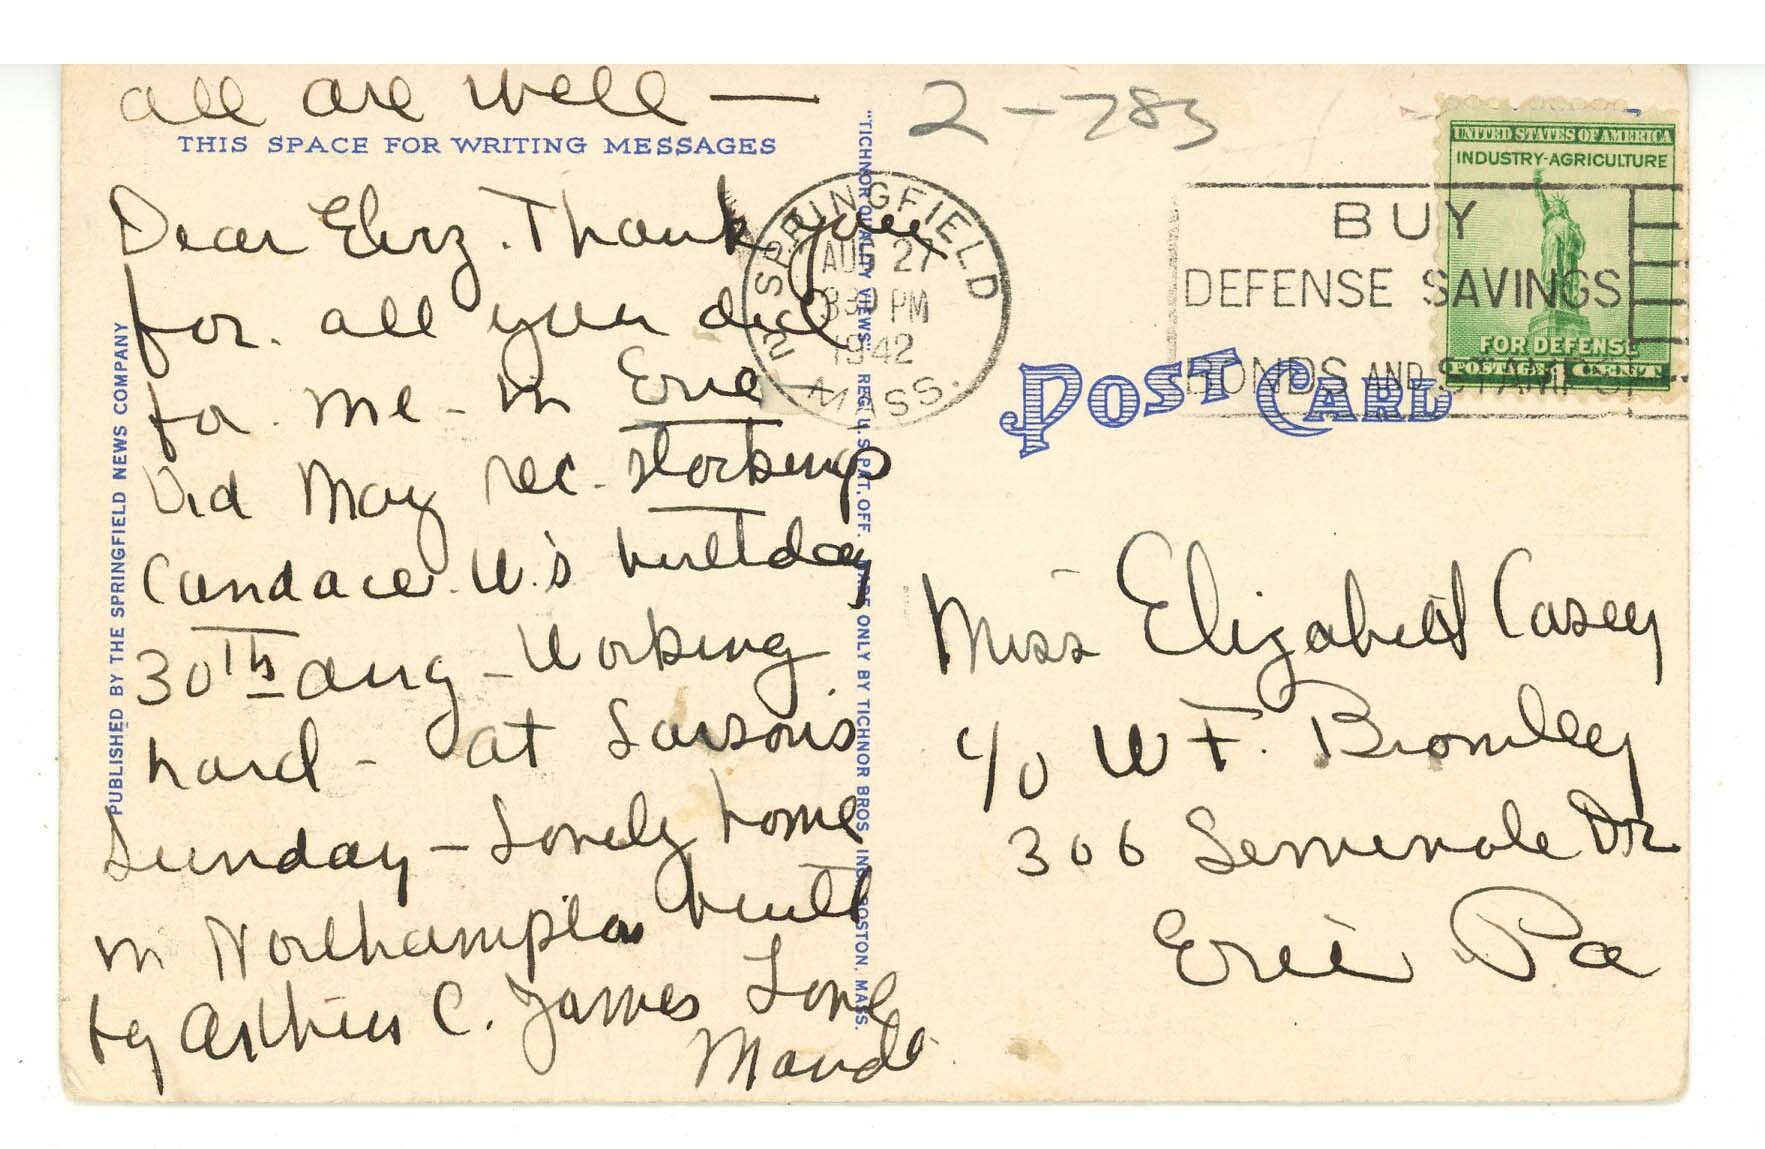 all are well —
THIS SPACE FOR WRITING MESSAGES
Dear Eliz. Thank you
for. all you did
for. me - in Erie —
Did May rec. stockings
Candace W.'s birthday
30th Aug - Working
hard - at Larsons
Sunday - Lovely home
in Northampton built
by Arthur C. James Love
Maude
PUBLISHED BY THE SPRINGFIELD NEWS COMPANY
"TICHNOR QUALITY VIEWS," REG. U. S. PAT. OFF. MADE ONLY BY TICHNOR BROS. INC. BOSTON, MASS.
2-783
SPRINGFIELD
AUG 27
330 PM
1942
MASS.
BUY
DEFENSE SAVINGS
BONDS AND STAMPS
UNITED STATES OF AMERICA
INDUSTRY-AGRICULTURE
FOR DEFENSE
POSTAGE 1 CENT
POST CARD
Miss Elizabeth Casey
c/o W F. Bromley
306 Seminole Dr
Erie Pa